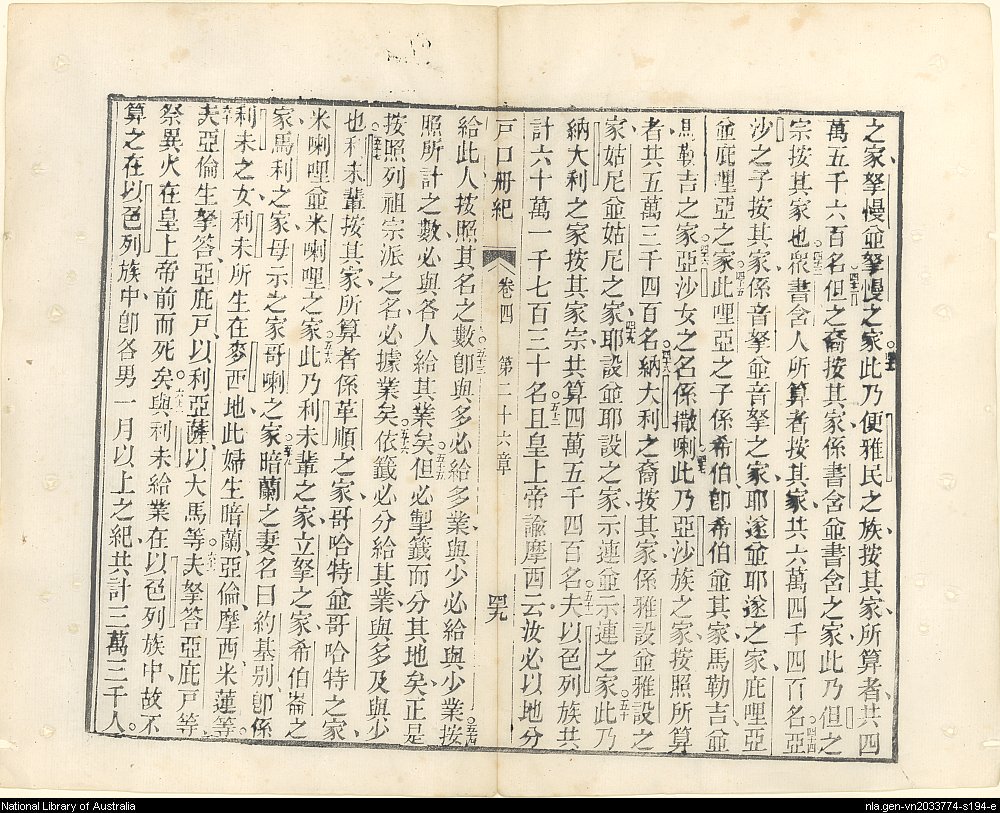 之家拏慢並拏慢之家此乃便雅民之族按其家所算者共四
萬五千六百名但之裔按其家係書含並書含之家此乃但之
宗按其家也衆書含人所算者按其家共六萬四千四百名亞
沙之子按其家係音拏並音拏之家耶遂並耶遂之家庇哩亞
並庇哩亞之家此哩亞之子係希伯卽希伯並其家馬勒吉並
馬勒吉之家亞沙女之名係撒喇此乃亞沙族之家按照所算
者其五萬三千四百名納大利之裔按其家係雅設並雅設之
家姑尼並姑尼之家耶設並耶設之家示連並示連之家此乃
納大利之家按其家宗共算四萬五千四百名夫以色列族共
計六十萬一千七百三十名且皇上帝諭摩西云汝必以地分
戶口冊紀 卷四 第二十六章 四九
給此人按照其名之數卽與多必給多業與少必給與少業按
照所計之數必與各人給其業矣但必掣籤而分其地矣正是
按照列祖宗派之名必據業矣依籤必分給其業與多及與少
也利未輩按其家所算者係革順之家哥哈特並哥哈特之家
米喇哩並米喇哩之家此乃利未輩之家立拏之家希伯崙之
家馬利之家母示之家哥喇之家暗蘭之妻名曰約基别卽係
利未之女利未所生在麥西地此婦生暗蘭亞倫摩西米蓮等
夫亞倫生拏答亞庇戶以利亞薩以大馬等夫拏答亞庇戶等
祭異火在皇上帝前而死矣與利未給業在以色列族中故不
算之在以色列族中卽各男一月以上之紀共計三萬三千人
National Library of Australia
nla.gen-vn2033774-s194-e